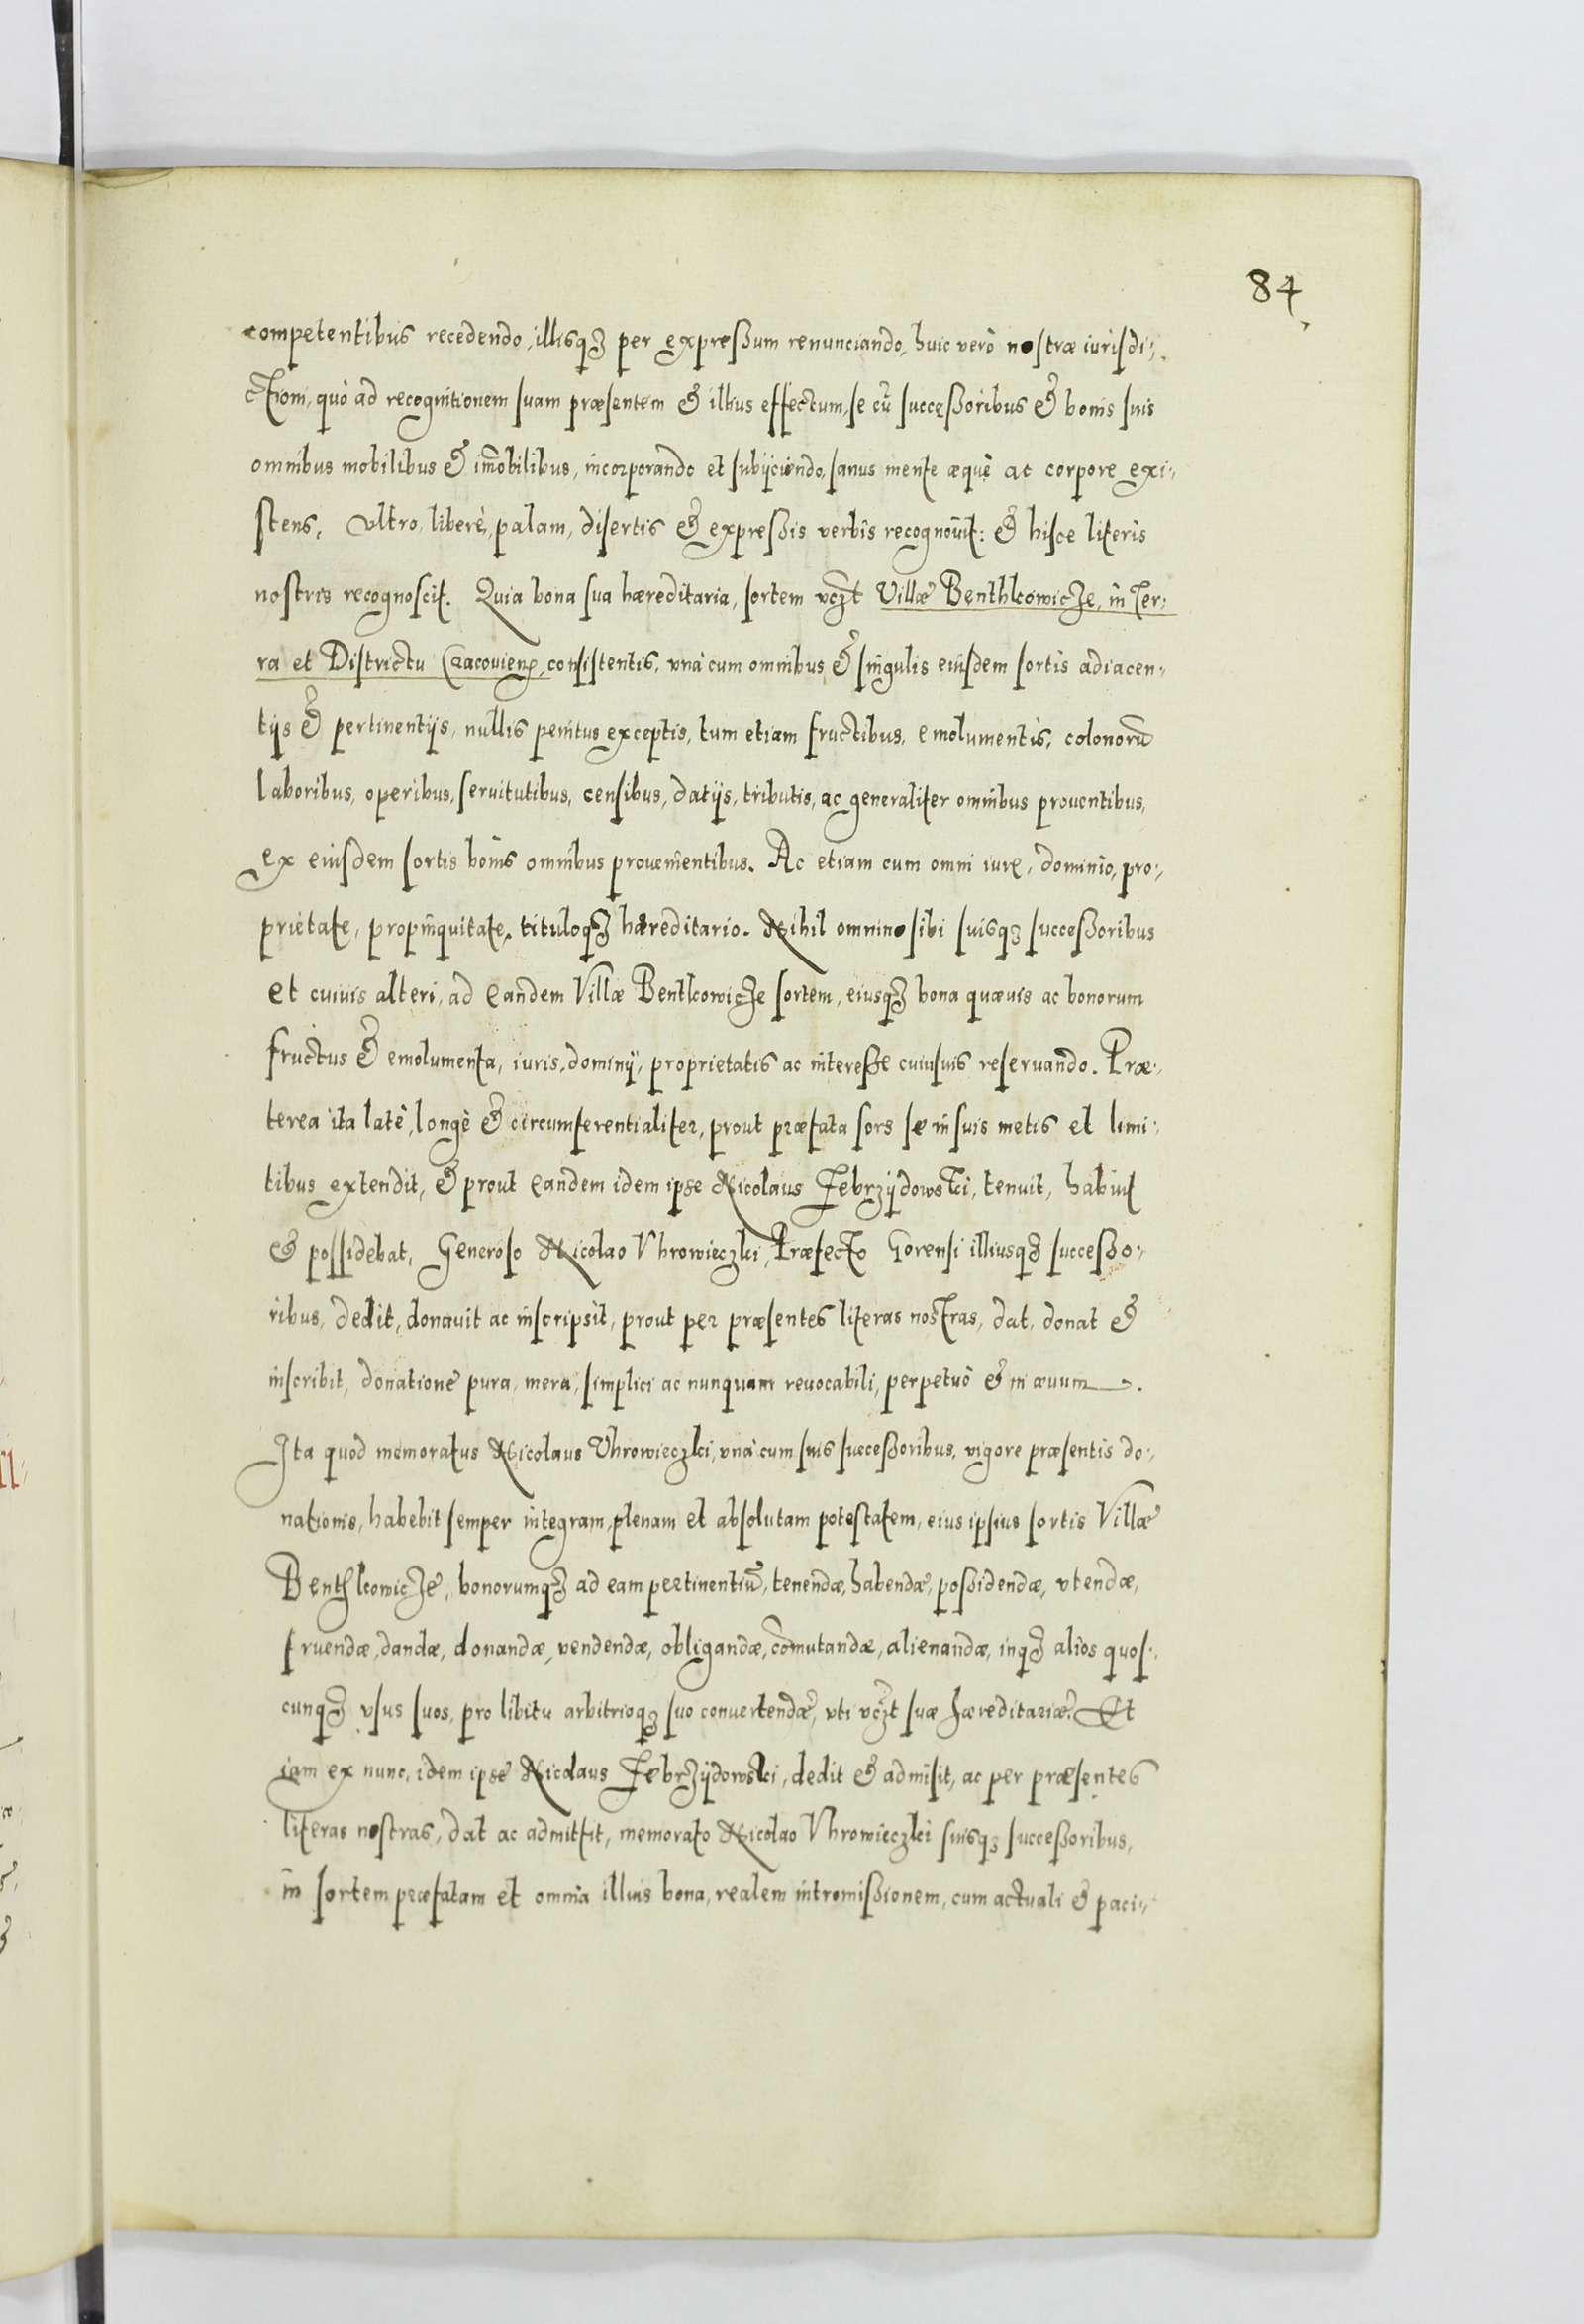 84
competentibus recedendo, illisqꝫ per expreßum renunciando, huic verò nostræ iurisdi:
ctioni, quò ad recognitionem suam præsentem & illius effectum, se cū succeßoribus & bonis suis
omnibus mobilibus & im̄obilibus, incorporando et subijciendo, sanus mente æquè ac corpore exi:
stens. Vltro, liberè, palam, disertis & expreßis verbis recognouit: & hisce literis
nostris recognoscit. Quia bona sua hæreditaria, sortem vczt Villæ Benthkowicze, in Ter:
ra et Districtu Cracouien, consistentis, vnà cum omnibus & singulis eiusdem sortis adiacen:
tijs & pertinentijs, nullis penitus exceptis, tum etiam fructibus, emolumentis, colonorū
laboribus, operibus, seruitutibus, censibus, datijs, tributis, ac generaliter omnibus prouentibus,
ex eiusdem sortis bonis omnibus prouenientibus. Ac etiam cum omni iure, dominio, pro:
prietate, propinquitate, tituloqꝫ hæreditario. Nihil omnino sibi suisqꝫ succeßoribus
et cuiuis alteri, ad eandem Villæ Bentkowicze sortem, eiusqꝫ bona quæuis ac bonorum
fructus & emolumenta, iuris, dominij, proprietatis ac intereße cuiusuis reseruando. Præ:
terea ita latè, longè & circumferentialiter, prout præfata sors se in suis metis et limi:
tibus extendit, & prout eandem idem ipse Nicolaus Zebrzydowski, tenuit, habuit
& possidebat, Generoso Nicolao Vhrowieczki, Præfecto Gorensi illiusqꝫ succeßo:
ribus, dedit, donauit ac inscripsit, prout per præsentes literas nostras, dat, donat &
inscribit, donatione pura, mera, simplici ac nunquam reuocabili, perpetuò & in æuum.
Ita quod memoratus Nicolaus Vhrowieczki, vnà cum suis succeßoribus, vigore præsentis do:
nationis, habebit semper integram, plenam et absolutam potestatem, eius ipsius sortis Villæ
Benthkowicze, bonorumqꝫ ad eam pertinentiū, tenendæ, habendæ, poßidendæ, vtendæ,
fruendæ, dandæ, donandæ, vendendæ, obligandæ, com̄utandæ, alienandæ, inqꝫ alios quos:
cunqꝫ vsus suos, pro libitu arbitrioqꝫ suo conuertendæ, vti vczt suæ hæreditariæ. Et
iam ex nunc, idem ipse Nicolaus Zebrzydowski, dedit & admisit, ac per præsentes
literas nostras, dat ac admittit, memorato Nicolao Vhrowieczki suisqꝫ succeßoribus,
in sortem præfatam et omnia illius bona, realem intromißionem, cum actuali & paci: